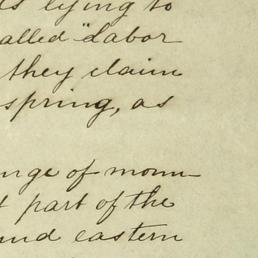 lying to
alled "labor
they claim
spring, as
nge of moun-
part of the
und eastern